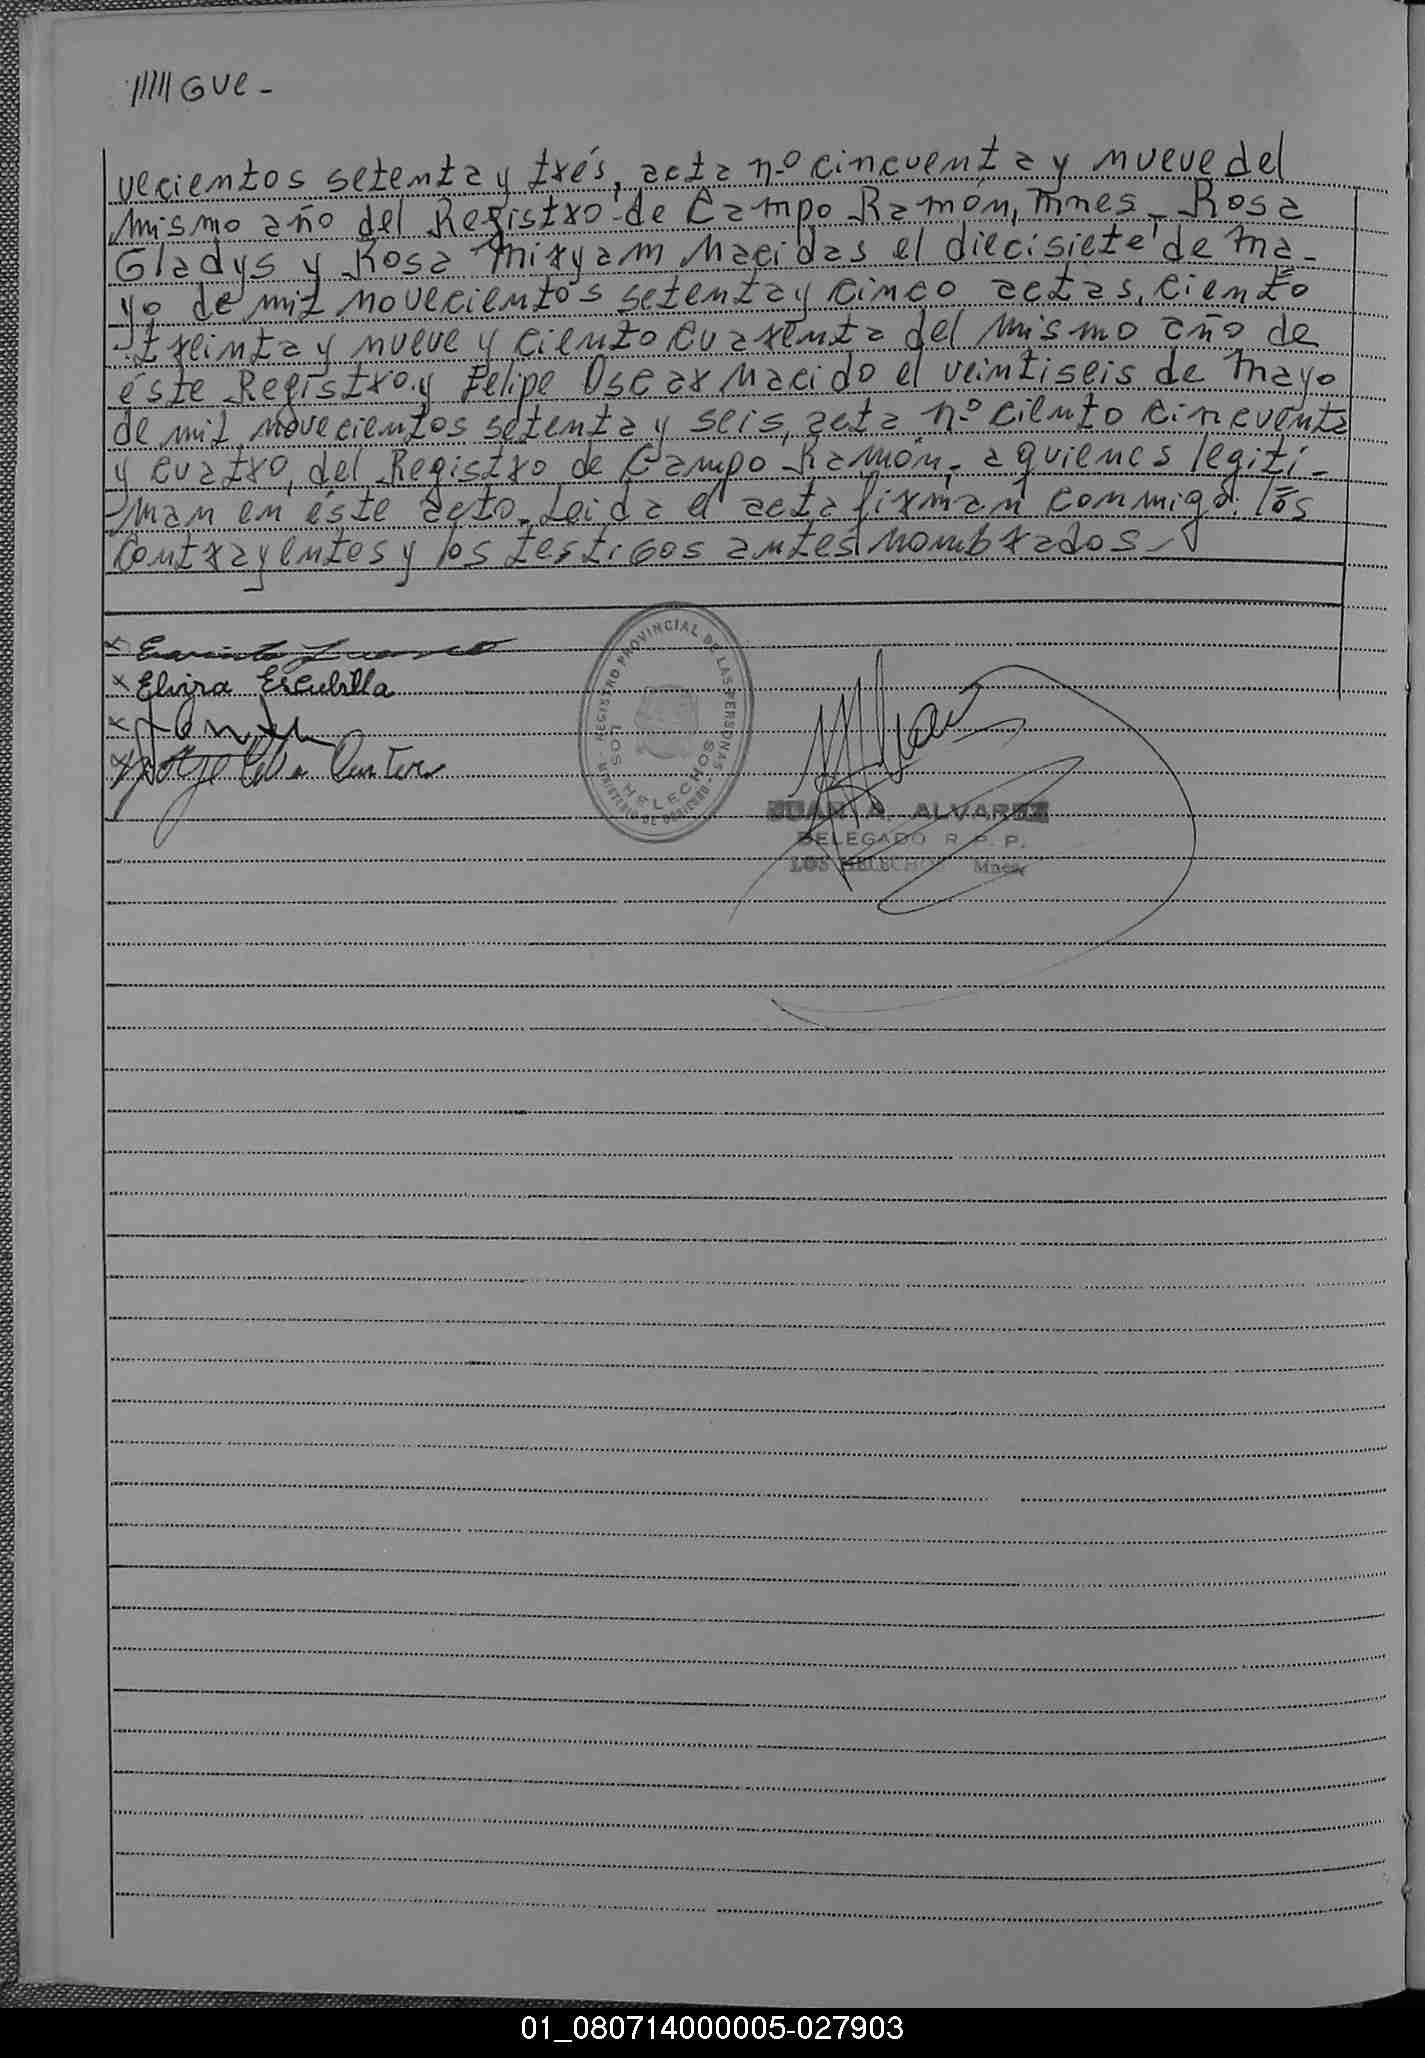 /////GUE-
vecientos setenta y trés, acta n.o cincuenta y nueve del
mismo año del Registro de Campo Ramón, Mnes_ Rosa
Gladys y Rosa Miryam nacidas el diecisiete de Ma-
yo de mil novecientos setenta y cinco actas, ciento
treinta y nueve y ciento cuarenta del mismo año de
éste Registro y Felipe Oscar nacido el veintiseis de Mayo
de mil novecientos setenta y seis, acta n.o ciento cincuenta
y cuatro, del Registro de Campo Ramón_ a quienes legiti-
man en éste acto. Leida el acta firman conmigo los
contrayentes y los testigos antes nombrados_
x
x Elvira Escubilla
x
x
REGISTRO PROVINCIAL DE LAS PERSONAS
LOS HELECHOS
MINISTERIO DE GOBIERNO
JUAN A. ALVAREZ
DELEGADO R. P. P.
LOS HELECHOS Mnes.
01_080714000005-027903